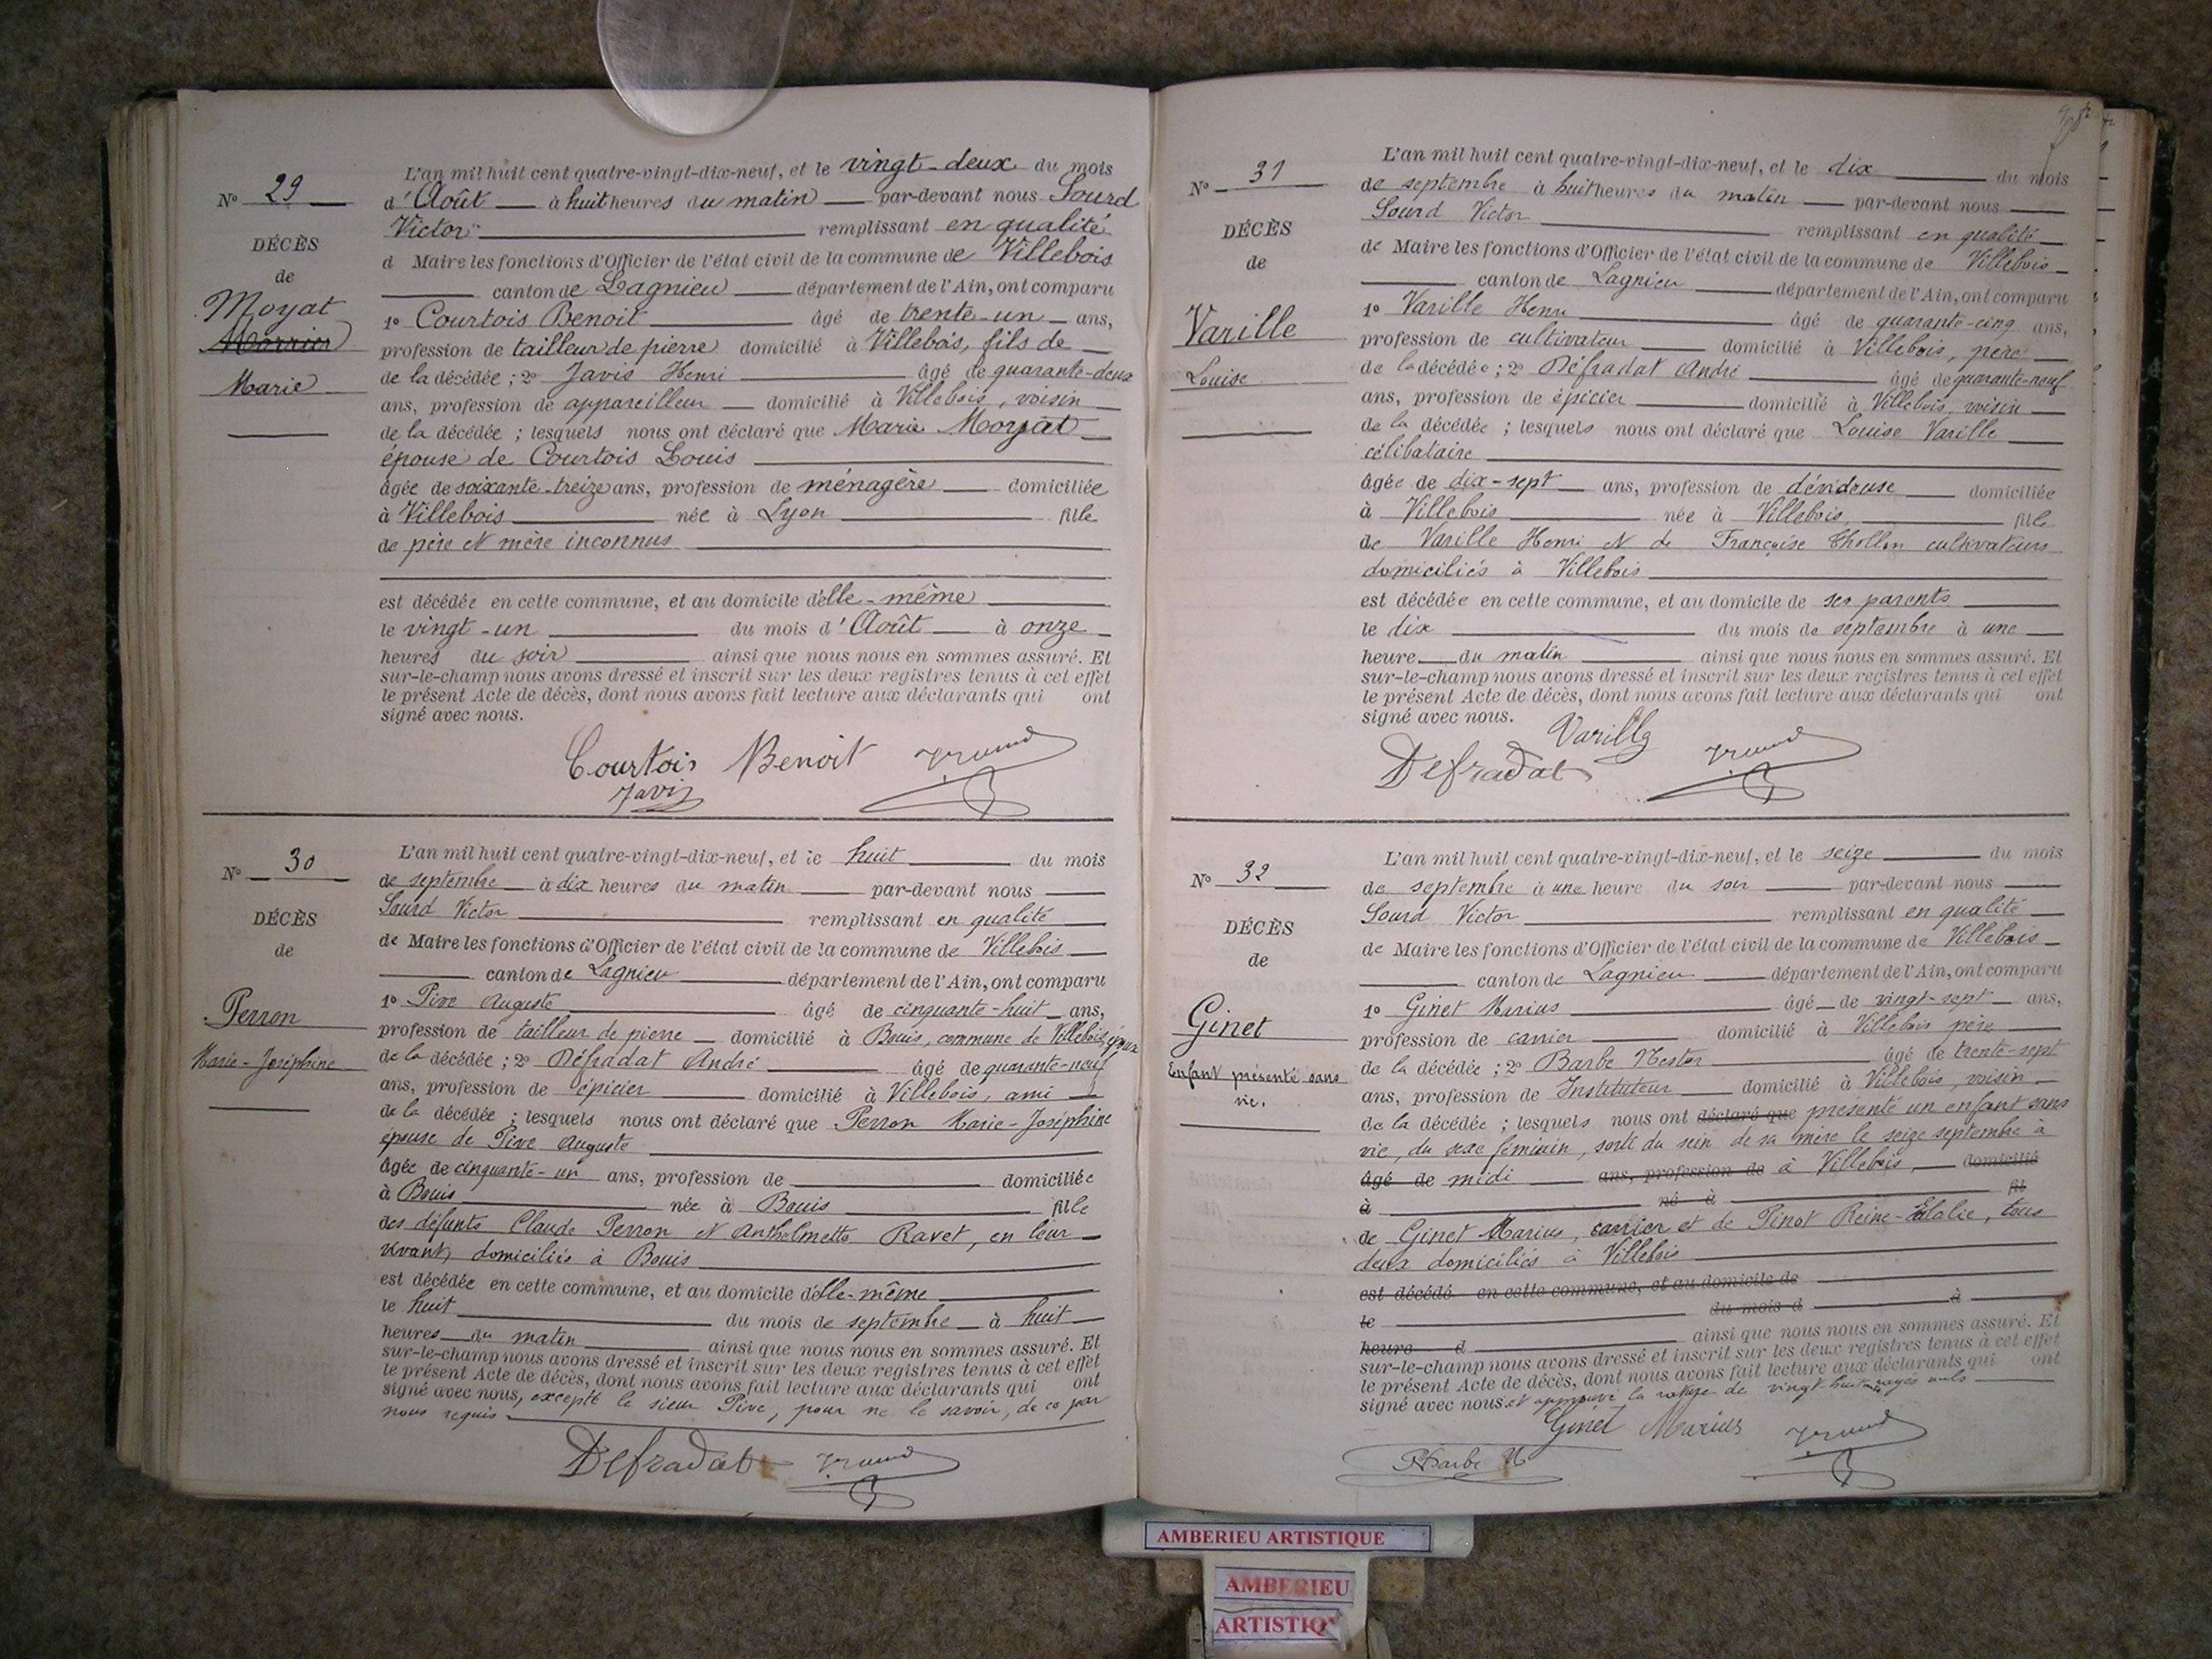 N° 29
DÉCÈS
de
Moyat
Morrier
Marie
L'an mil huit cent quatre-vingt-dix-neuf, et le vingt-deux du mois
d'Août à huit heures du matin par-devant nous Sourd
Victor remplissant en qualité
d Maire les fonctions d'Officier de l'état civil de la commune de Villebois
canton de Lagnieu département de l'Ain, ont comparu
1° Courtois Benoit âgé de trente-un ans,
profession de tailleur de pierre domicilié à Villebois, fils de
de la décédée ; 2° Javis Henri âgé de quarante-deux
ans, profession de appareilleur domicilié à Villebois, voisin
de la décédée ; lesquels nous ont déclaré que Marie Moyat
épouse de Courtois Louis
âgée de soixante-treize ans, profession de ménagère domiciliée
à Villebois née à Lyon fille
de père et mère inconnus
est décédée en cette commune, et au domicile d'elle-même
le vingt-un du mois d'Août à onze
heures du soir ainsi que nous nous en sommes assuré. Et
sur-le-champ nous avons dressé et inscrit sur les deux registres tenus à cet effet
le présent Acte de décès, dont nous avons fait lecture aux déclarants qui ont
signé avec nous.
Courtois Benoit
Javis
N° 30
DÉCÈS
de
Perron
Marie-Joséphine
L'an mil huit cent quatre-vingt-dix-neuf, et le huit du mois
de septembre à dix heures du matin par-devant nous
Sourd Victor remplissant en qualité
de Maire les fonctions d'Officier de l'état civil de la commune de Villebois
canton de Lagnieu département de l'Ain, ont comparu
1° Pive Auguste âgé de cinquante-huit ans,
profession de tailleur de pierre domicilié à Bouis, commune de Villebois, époux
de la décédée ; 2° Défradat André âgé de quarante-neuf
ans, profession de épicier domicilié à Villebois, ami
de la décédée ; lesquels nous ont déclaré que Perron Marie-Joséphine
épouse de Pive Auguste
âgée de cinquante-un ans, profession de domiciliée
à Bouis née à Bouis fille
des défunts Claude Perron et Anthelmette Ravet, en leur
vivant, domiciliés à Bouis
est décédée en cette commune, et au domicile d'elle-même
le huit du mois de septembre à huit
heures du matin ainsi que nous nous en sommes assuré. Et
sur-le-champ nous avons dressé et inscrit sur les deux registres tenus à cet effet
le présent Acte de décès, dont nous avons fait lecture aux déclarants qui ont
signé avec nous, excepté le sieur Pive, pour ne le savoir, de ce par
nous requis.
Defradat
N° 31
DÉCÈS
de
Varille
Louise
L'an mil huit cent quatre-vingt-dix-neuf, et le dix du mois
de septembre à huit heures du matin par-devant nous
Sourd Victor remplissant en qualité
de Maire les fonctions d'Officier de l'état civil de la commune de Villebois
canton de Lagnieu département de l'Ain, ont comparu
1° Varille Henri âgé de quarante-cinq ans,
profession de cultivateur domicilié à Villebois, père
de la décédée ; 2° Défradat André âgé de quarante-neuf
ans, profession de épicier domicilié à Villebois, voisin
de la décédée ; lesquels nous ont déclaré que Louise Varille
célibataire
âgée de dix-sept ans, profession de dévideuse domiciliée
à Villebois née à Villebois, fille
de Varille Henri et de Françoise Thollon cultivateurs
domiciliés à Villebois
est décédée en cette commune, et au domicile de ses parents
le dix du mois de septembre à une
heure du matin ainsi que nous nous en sommes assuré. Et
sur-le-champ nous avons dressé et inscrit sur les deux registres tenus à cet effet
le présent Acte de décès, dont nous avons fait lecture aux déclarants qui ont
signé avec nous.
Varille
Defradat
N° 32
DÉCÈS
de
Ginet
Enfant présenté sans
vie.
L'an mil huit cent quatre-vingt-dix-neuf, et le seize du mois
de septembre à une heure du soir par-devant nous
Sourd Victor remplissant en qualité
de Maire les fonctions d'Officier de l'état civil de la commune de Villebois
canton de Lagnieu département de l'Ain, ont comparu
1° Ginet Marius âgé de vingt-sept ans,
profession de carrier domicilié à Villebois père
de la décédée ; 2° Barbe Nestor âgé de trente-sept
ans, profession de Instituteur domicilié à Villebois, voisin
de la décédée ; lesquels nous ont déclaré que présenté un enfant sans
vie, du sexe féminin, sorti du sein de sa mère le seize septembre à
âgé de midi ans, profession de à Villebois, domicilié
à né à fil
de Ginet Marius, carrier et de Pinot Reine-Elalie, tous
deux domiciliés à Villebois
est décédé en cette commune, et au domicile de
le du mois d à
heure d ainsi que nous nous en sommes assuré. Et
sur-le-champ nous avons dressé et inscrit sur les deux registres tenus à cet effet
le présent Acte de décès, dont nous avons fait lecture aux déclarants qui ont
signé avec nous et approuvé la rature de vingt-huit mots rayés nuls
Ginet Marius
Barbe N
AMBERIEU ARTISTIQUE
AMBERIEU
ARTISTIQ